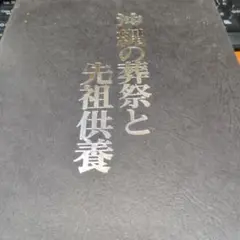 沖縄の葬祭と
先祖供養